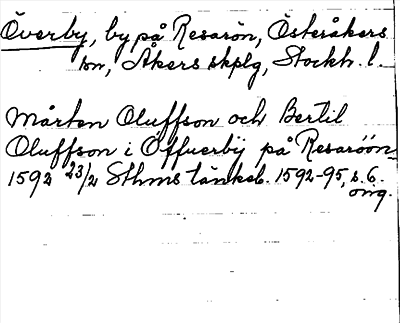 Överby, by på Resarön, Österåkers
sn, Åkers skplg, Stockh. l.
Mårten Oluffson och Bertil
Oluffson i Öffuerbij på Resaröön
1592 23/2 Sthms tänkeb. 1592-95, s. 6.
orig.